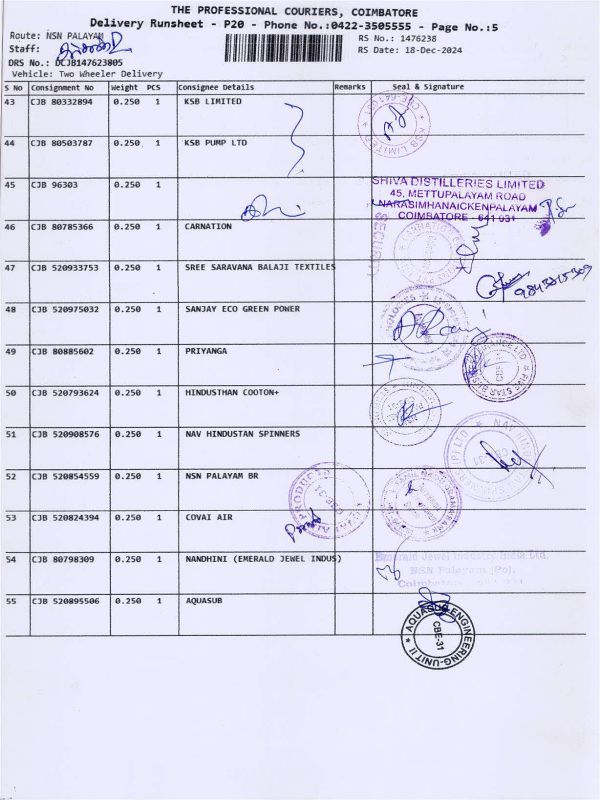 THE PROFESSIONAL COURIERS, COIMBATORE
Delivery Runsheet - P20 - Phone No.:0422-3505555 - Page No.:5
Route: NSN PALAYAM
RS No.: 1476238
Staff:
RS Date: 18-Dec-2024
DRS No.: DCJB147623805
Vehicle: Two Wheeler Delivery
S No Consignment No Weight PCS Consignee Details Remarks Seal & Signature
43 CJB 80332894 0.250 1 KSB LIMITED
KSB LIMITED
44 CJB 80503787 0.250 1 KSB PUMP LTD
45 CJB 96303 0.250 1
SHIVA DISTILLERIES LIMITED
45, METTUPALAYAM ROAD
NARASIMHANAICKENPALAYAM
COIMBATORE - 641 031
SECURITY
46 CJB 80785366 0.250 1 CARNATION
47 CJB 520933753 0.250 1 SREE SARAVANA BALAJI TEXTILES
48 CJB 520975032 0.250 1 SANJAY ECO GREEN POWER
49 CJB 80885602 0.250 1 PRIYANGA
50 CJB 520793624 0.250 1 HINDUSTHAN COOTON+
51 CJB 520908576 0.250 1 NAV HINDUSTAN SPINNERS
52 CJB 520854559 0.250 1 NSN PALAYAM BR
53 CJB 520824394 0.250 1 COVAI AIR
54 CJB 80798309 0.250 1 NANDHINI (EMERALD JEWEL INDUS)
Emerald Jewel Industry India Ltd.
NSN Palayam (Po),
55 CJB 520895506 0.250 1 AQUASUB
AQUASUB ENGINEERING-UNIT II
CBE-31